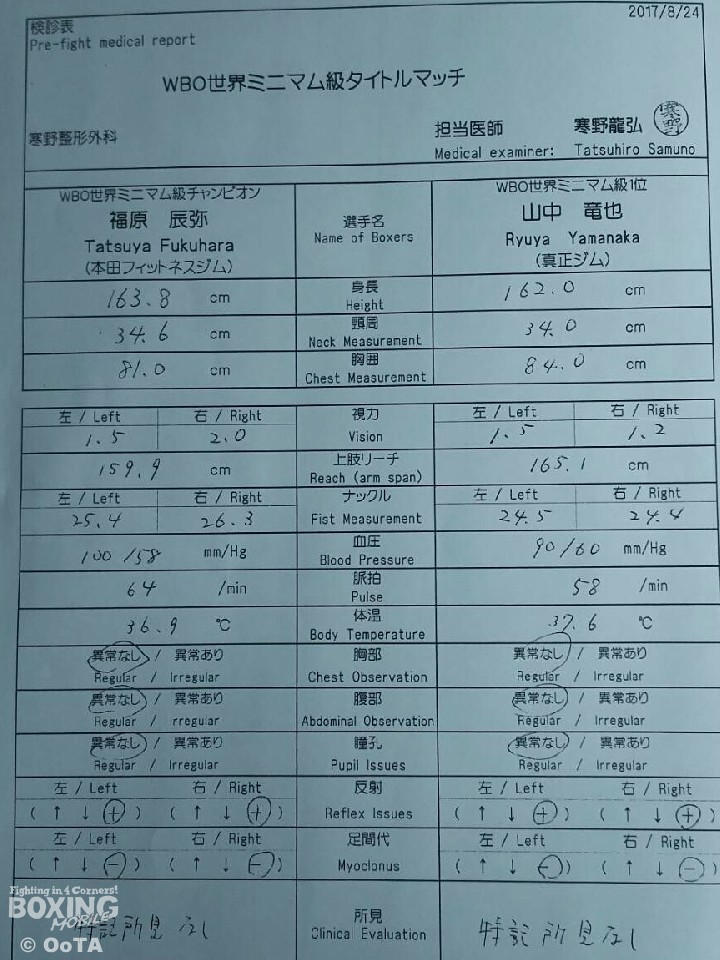 2017/8/24
検診表
Pre-fight medical report
WBO世界ミニマム級タイトルマッチ
寒野整形外科
担当医師 寒野龍弘 寒野
Medical examiner: Tatsuhiro Samuno
WBO世界ミニマム級チャンピオン
福原 辰弥
Tatsuya Fukuhara
(本田フィットネスジム)
選手名
Name of Boxers
WBO世界ミニマム級1位
山中 竜也
Ryuya Yamanaka
(真正ジム)
163.8 cm 身長 162.0 cm
Height
34.6 cm 頸周 34.0 cm
Neck Measurement
81.0 cm 胸囲 84.0 cm
Chest Measurement
左 / Left 右 / Right 視力 左 / Left 右 / Right
1.5 2.0 Vision 1.5 1.2
159.9 cm 上肢リーチ 165.1 cm
Reach (arm span)
左 / Left 右 / Right ナックル 左 / Left 右 / Right
25.4 26.3 Fist Measurement 24.5 24.4
100/58 mm/Hg 血圧 90/60 mm/Hg
Blood Pressure
64 /min 脈拍 58 /min
Pulse
36.9 ℃ 体温 37.6 ℃
Body Temperature
異常なし / 異常あり 胸部 異常なし / 異常あり
Regular / Irregular Chest Observation Regular / Irregular
異常なし / 異常あり 腹部 異常なし / 異常あり
Regular / rregular Abdominal Observation Regular / Irregular
異常なし / 異常あり 瞳孔 異常なし / 異常あり
Regular / Irregular Pupil Issues Regular / Irregular
左 / Left 右 / Right 反射 左 / Left 右 / Right
( ↑ ↓ + ) ( ↑ ↓ + ) Reflex Issues ( ↑ ↓ + ) ( ↑ ↓ + )
左 / Left 右 / Right 足間代 左 / Left 右 / Right
( ↑ ↓ - ) ( ↑ ↓ - ) Myoclonus ( ↑ ↓ - ) ( ↑ ↓ - )
特記所見なし 所見 特記所見なし
Clinical Evaluation
Fighting in 4 Corners!
BOXING
MOBILE
© OoTA